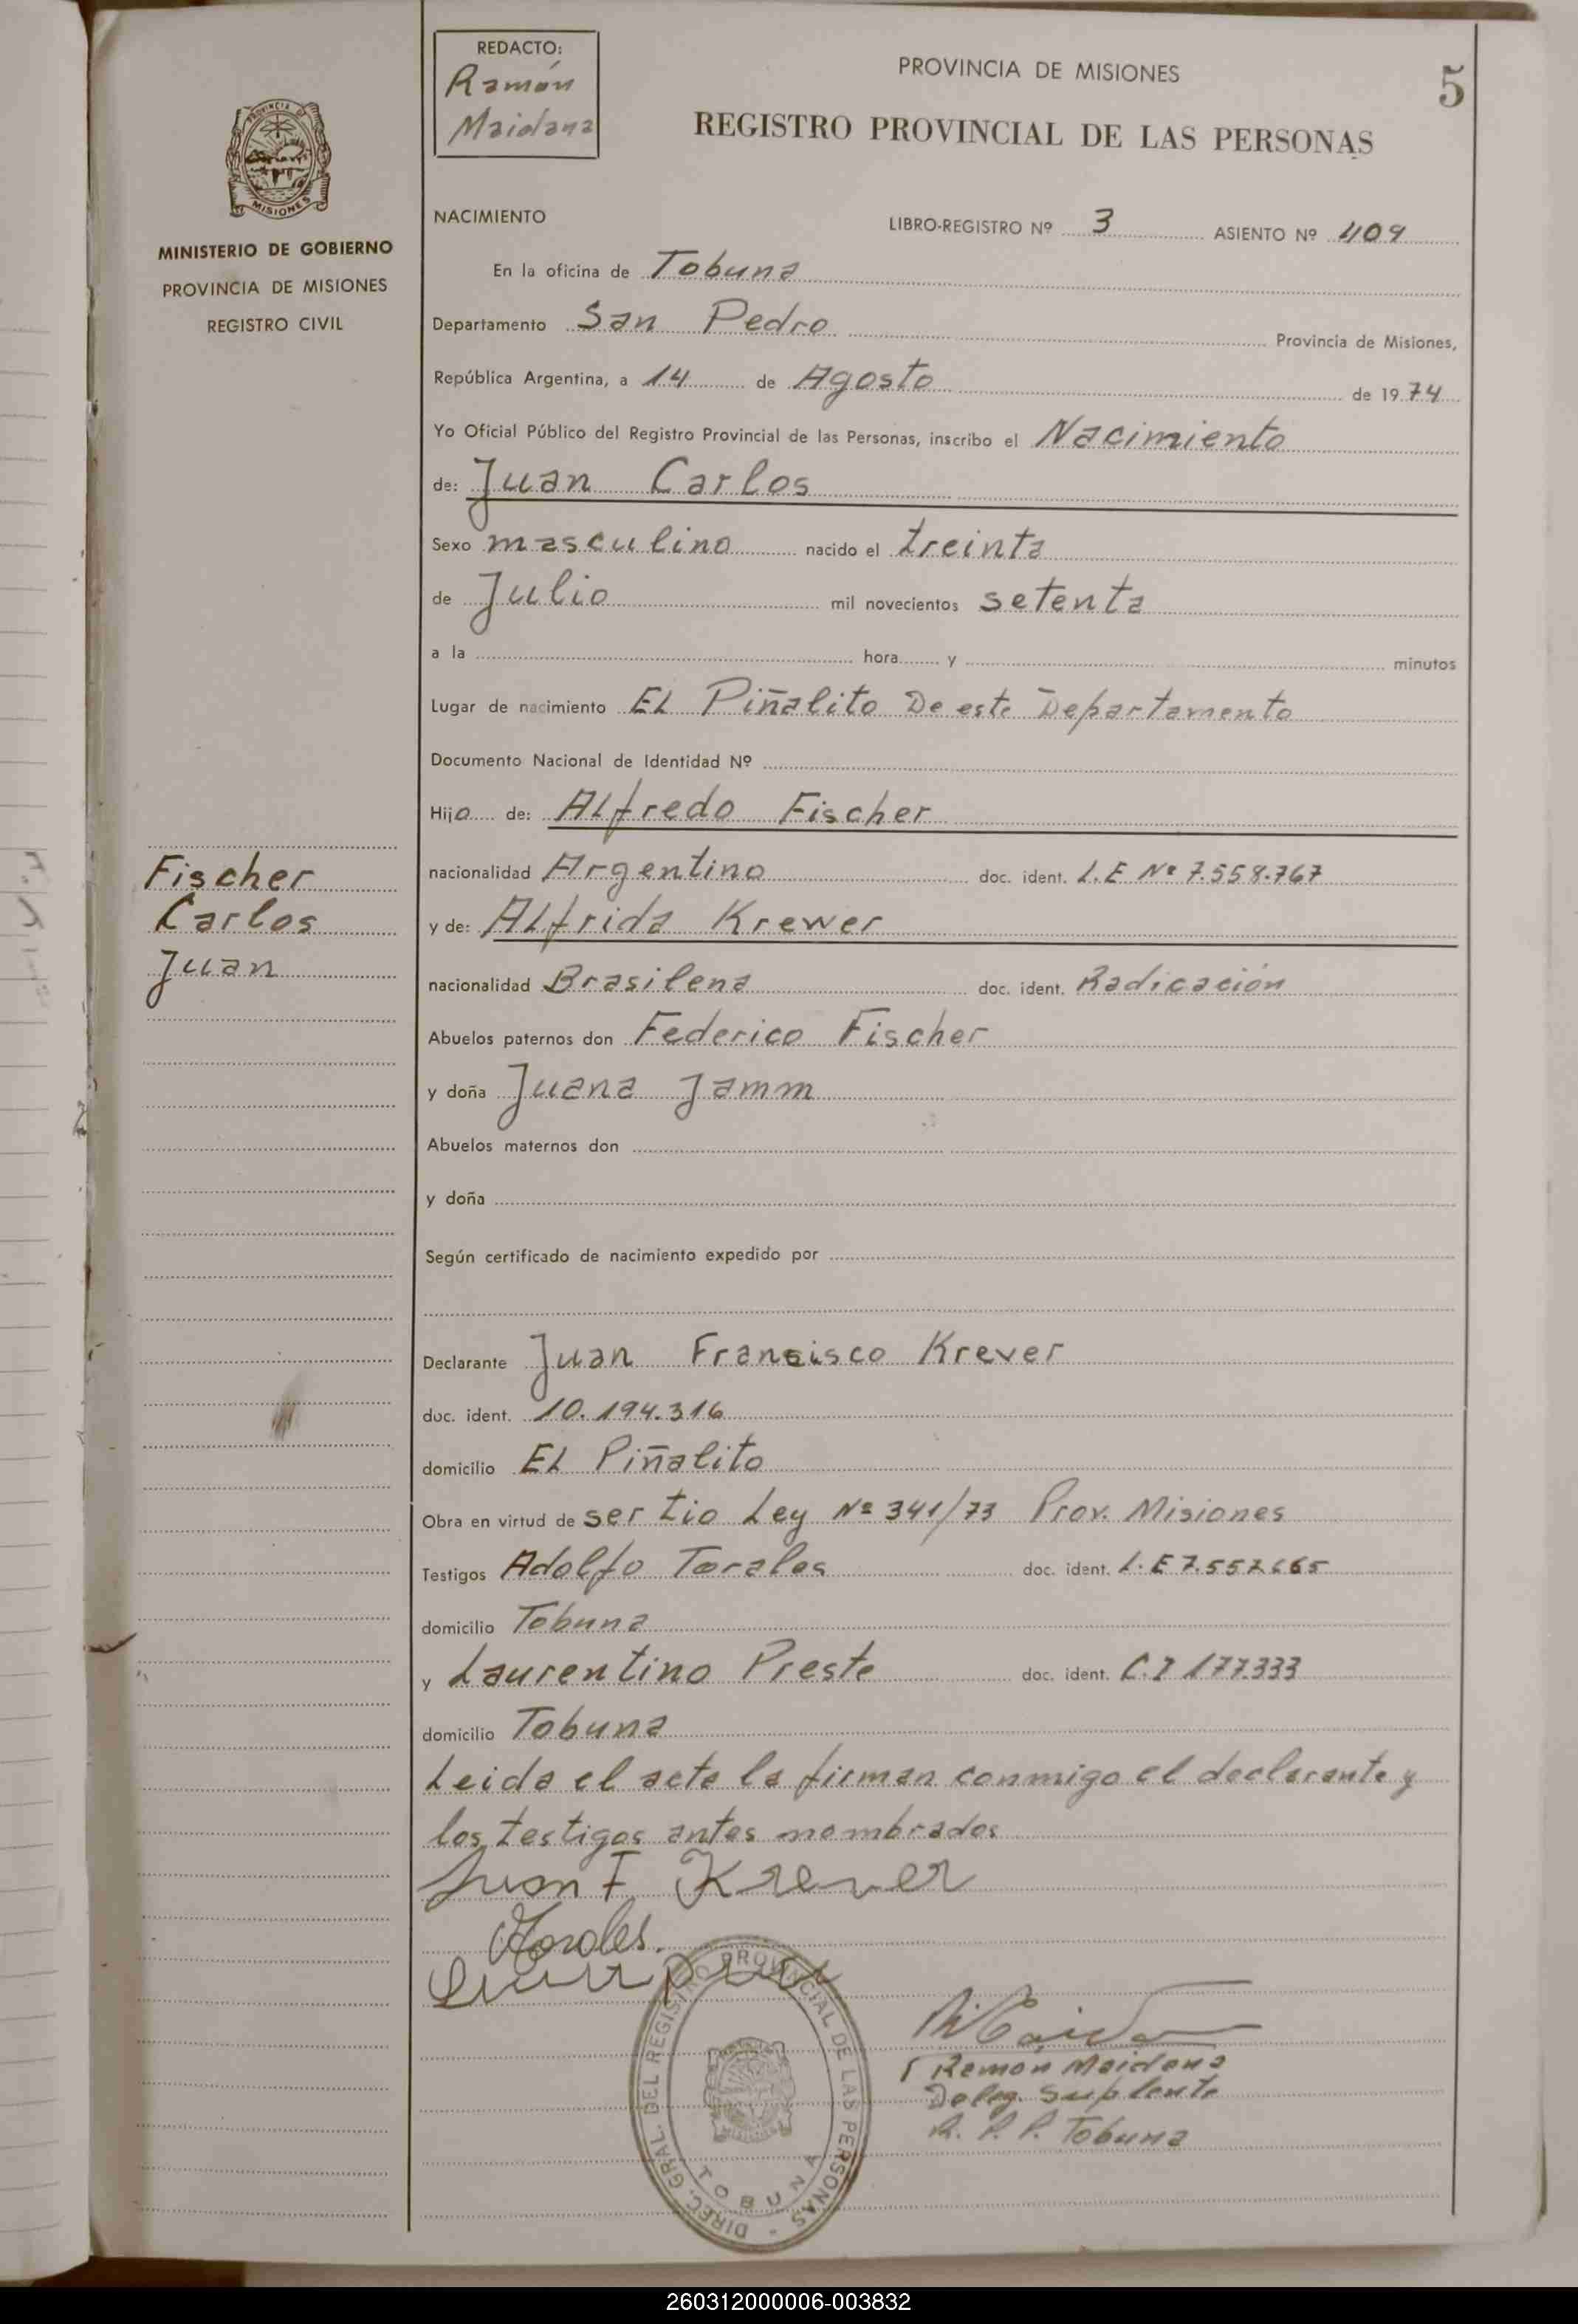 REDACTO:
Ramón
Maidana
PROVINCIA DE MISIONES
5
REGISTRO PROVINCIAL DE LAS PERSONAS
MISIONES
MINISTERIO DE GOBIERNO
PROVINCIA DE MISIONES
REGISTRO CIVIL
NACIMIENTO LIBRO-REGISTRO Nº 3 ASIENTO Nº 409
En la oficina de Tobuna
Departamento San Pedro Provincia de Misiones,
República Argentina, a 14 de Agosto de 1974
Yo Oficial Público del Registro Provincial de las Personas, inscribo el Nacimiento
de: Juan Carlos
Sexo masculino nacido el treinta
de Julio mil novecientos setenta
a la hora y minutos
Lugar de nacimiento El Piñalito De este Departamento
Documento Nacional de Identidad Nº
Hijo de: Alfredo Fischer
Fischer
Carlos
Juan
nacionalidad Argentino doc. ident. L.E Nº 7.558.767
y de: Alfrida Krewer
nacionalidad Brasilena doc. ident. Radicación
Abuelos paternos don Federico Fischer
y doña Juana Jamm
Abuelos maternos don
y doña
Según certificado de nacimiento expedido por
Declarante Juan Francisco Krever
doc. ident. 10.194.316
domicilio El Piñalito
Obra en virtud de ser tio Ley Nº 341/73 Prov. Misiones
Testigos Adolfo Torales doc. ident. L.E 7.557.665
domicilio Tobuna
y Laurentino Preste doc. ident. C.I 177.333
domicilio Tobuna
Leida el acta la firman conmigo el declarante y
los testigos antes nombrados
Juan F Krever
Torales.
DIREC. GRAL. DEL REGISTRO PROVINCIAL DE LAS PERSONAS
TOBUNA
Ramón Maidana
Deleg. Suplente
R. P. P. Tobuna
260312000006-003832